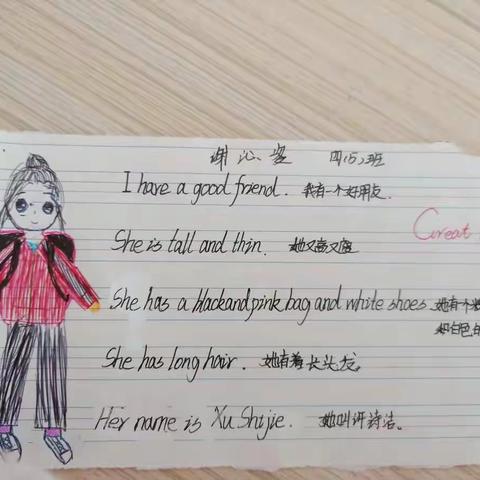 谢沁窑 四(5)班
I have a good friend. 我有一个好朋友.
Great
She is tall and thin. 她又高又瘦
She has a black and pink bag and white shoes. 她有个
和白色
She has long hair. 她有着长头发.
Her name is Xu Shijie. 她叫许诗洁。